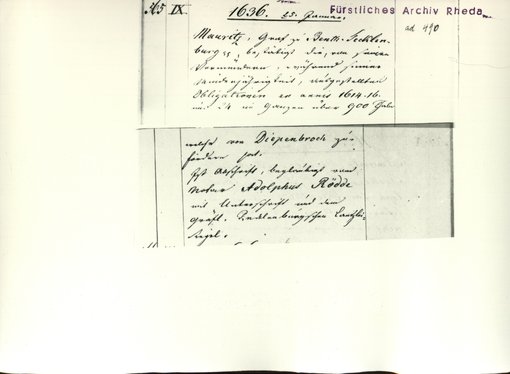 365 IX. 1636. 25. Januar. Fürstliches Archiv Rheda
ad 490
Mauritz, Graf zu Benth. Tecklen-
burg pp, bestätigt die, von seinen
Vormündern, während seiner
Minderjährigkeit, ausgestellten
Obligationen ex annis 1614-16.
im Ganzen über 900
welche von Diepenbroch zu
fordern hat.
Ist Abschrift, beglaubigt vom
Notar Adolphus Rödde
mit Unterschrift und dem
Gräfl. Tecklenburgischen Canzlei-
Siegel.